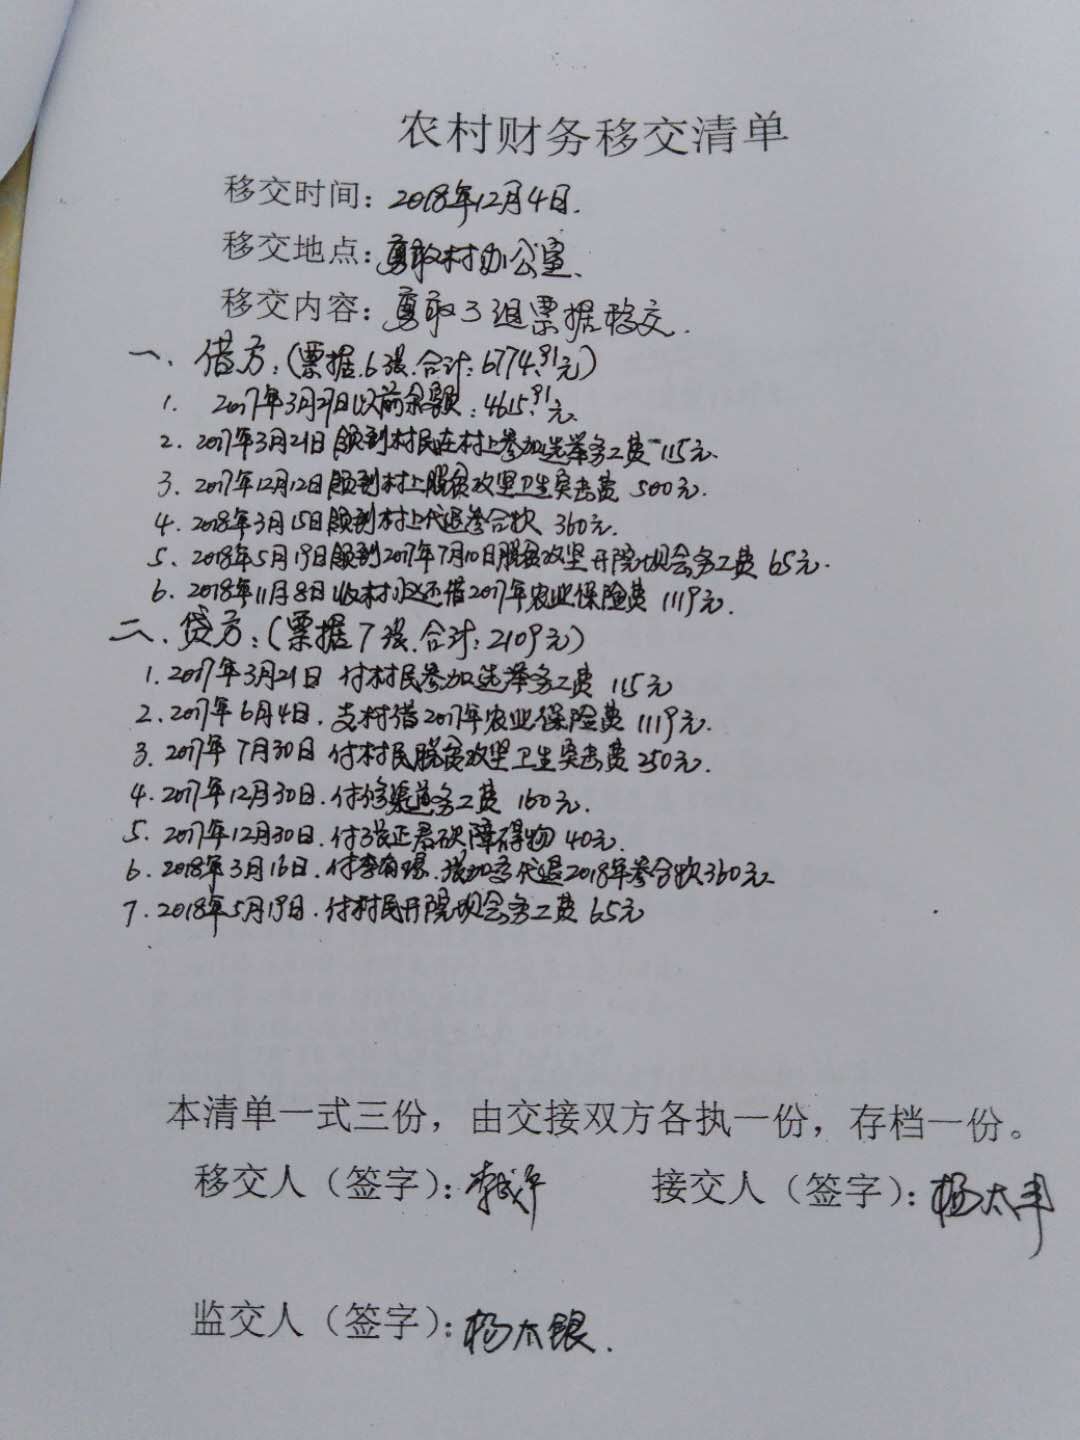 农村财务移交清单
移交时间：2018年12月4日.
移交地点：勇敢村办公室.
移交内容：勇敢3组票据移交.
一、借方：(票据6张.合计:6774.91元)
1. 2017年3月21日以前余额：4615.91元.
2. 2017年3月21日领到村民在村上参加选举务工费 115元.
3. 2017年12月12日领到村上脱贫攻坚卫生突击费 500元.
4. 2018年3月15日领到村上代退参合款 360元.
5. 2018年5月19日领到2017年7月10日脱贫攻坚开院坝会务工费 65元.
6. 2018年11月8日收村归还借2017年农业保险费 1119元.
二、贷方：(票据7张.合计:2109元)
1. 2017年3月21日 付村民参加选举务工费 115元
2. 2017年6月4日. 支村借2017年农业保险费 1119元.
3. 2017年7月30日 付村民脱贫攻坚卫生突击费250元.
4. 2017年12月30日. 付修渠道务工费 160元.
5. 2017年12月30日. 付张正君砍障碍物 40元.
6. 2018年3月16日. 付李 代退2018年参合款360元.
7. 2018年5月19日. 付村民开院坝会务工费 65元
本清单一式三份，由交接双方各执一份，存档一份。
移交人（签字）：李成平 接交人（签字）：杨太丰
监交人（签字）：杨太银.